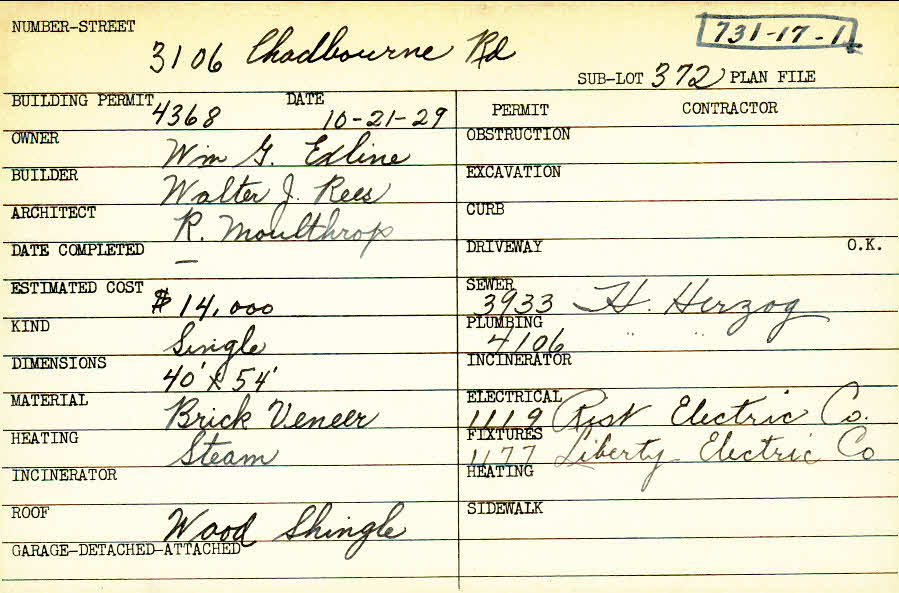 NUMBER-STREET
3106 Chadbourne Rd
731-17-1
SUB-LOT 372 PLAN FILE
BUILDING PERMIT 4368 DATE 10-21-29
OWNER Wm G. Edline
BUILDER Walter J. Rees
ARCHITECT R. Moulthrop
DATE COMPLETED —
ESTIMATED COST $14,000
KIND Single
DIMENSIONS 40' x 54'
MATERIAL Brick Veneer
HEATING Steam
INCINERATOR
ROOF Wood Shingle
GARAGE-DETACHED-ATTACHED
PERMIT CONTRACTOR
OBSTRUCTION
EXCAVATION
CURB
DRIVEWAY O.K.
SEWER 3933 H. Herzog
PLUMBING 4106 " "
INCINERATOR
ELECTRICAL 1119 Electric Co.
FIXTURES 1177 Liberty Electric Co
HEATING
SIDEWALK